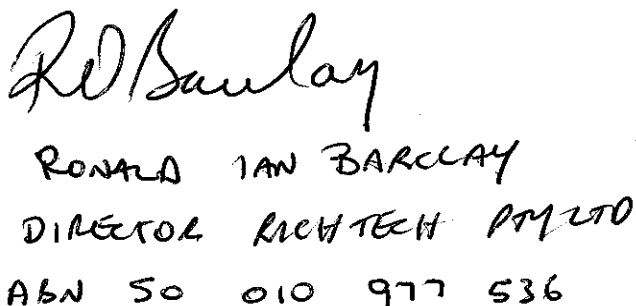 RIBarclay
RONALD IAN BARCLAY
DIRECTOR RICHTECH PTY LTD
ABN 50 010 977 536